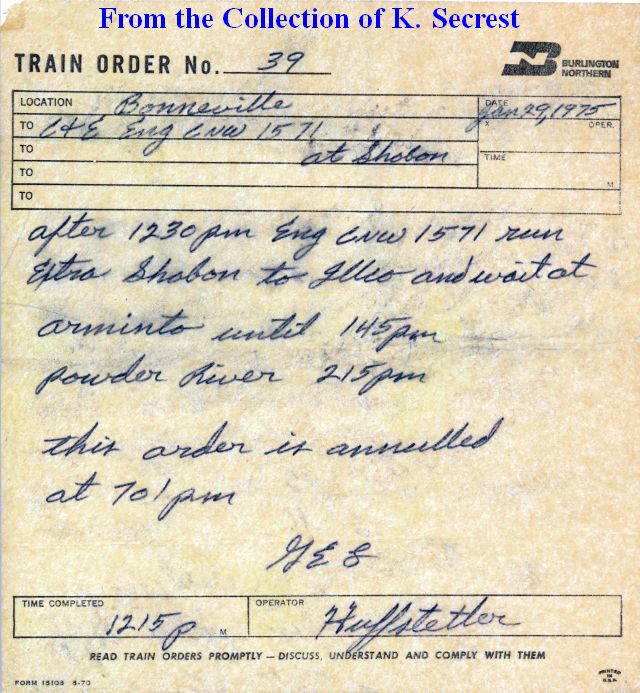 From the Collection of K. Secrest
TRAIN ORDER No. 39
BURLINGTON
NORTHERN
LOCATION Bonneville
DATE Jan 29, 1975
TO C&E Eng CNW 1571
X OPER.
TO at Shobon
TIME M
TO
TO
after 1230 pm Eng CNW 1571 run
Extra Shobon to Illco and wait at
arminto until 145 pm
powder River 215 pm
this order is annulled
at 701 pm
G E S
TIME COMPLETED 1215 p M
OPERATOR Huffstetler
READ TRAIN ORDERS PROMPTLY — DISCUSS, UNDERSTAND AND COMPLY WITH THEM
FORM 15103 5-70
PRINTED
IN
U.S.A.